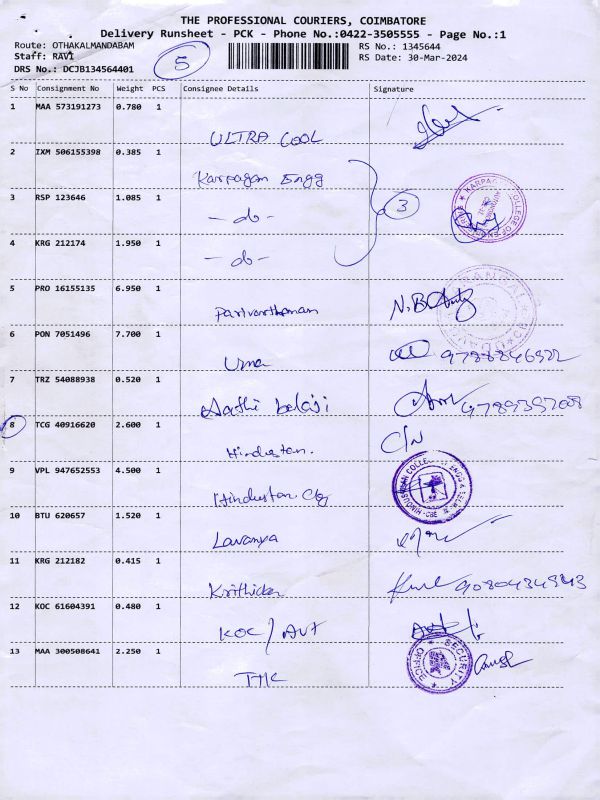 THE PROFESSIONAL COURIERS, COIMBATORE
Delivery Runsheet - PCK - Phone No.:0422-3505555 - Page No.:1
Route: OTHAKALMANDABAM
RS No.: 1345644
Staff: RAVI
RS Date: 30-Mar-2024
DRS No.: DCJB134564401
5
S No Consignment No Weight PCS Consignee Details Signature
1 MAA 573191273 0.780 1
ULTRA COOL
2 IXM 506155398 0.385 1
Karpagam Engg
3 RSP 123646 1.085 1
- do - 3
4 KRG 212174 1.950 1
- do -
5 PRO 16155135 6.950 1
Parivarthanan
6 PON 7051496 7.700 1
Uma
7 TRZ 54088938 0.520 1
Aarthi balaji
8 TCG 40916620 2.600 1
Hindustan. C/N
9 VPL 947652553 4.500 1
Hindustan Clg
10 BTU 620657 1.520 1
Lavanya
11 KRG 212182 0.415 1
Krithika 9080434943
12 KOC 61604391 0.480 1
KOC / AVT
13 MAA 300508641 2.250 1
SECURITY OFFICE
THC